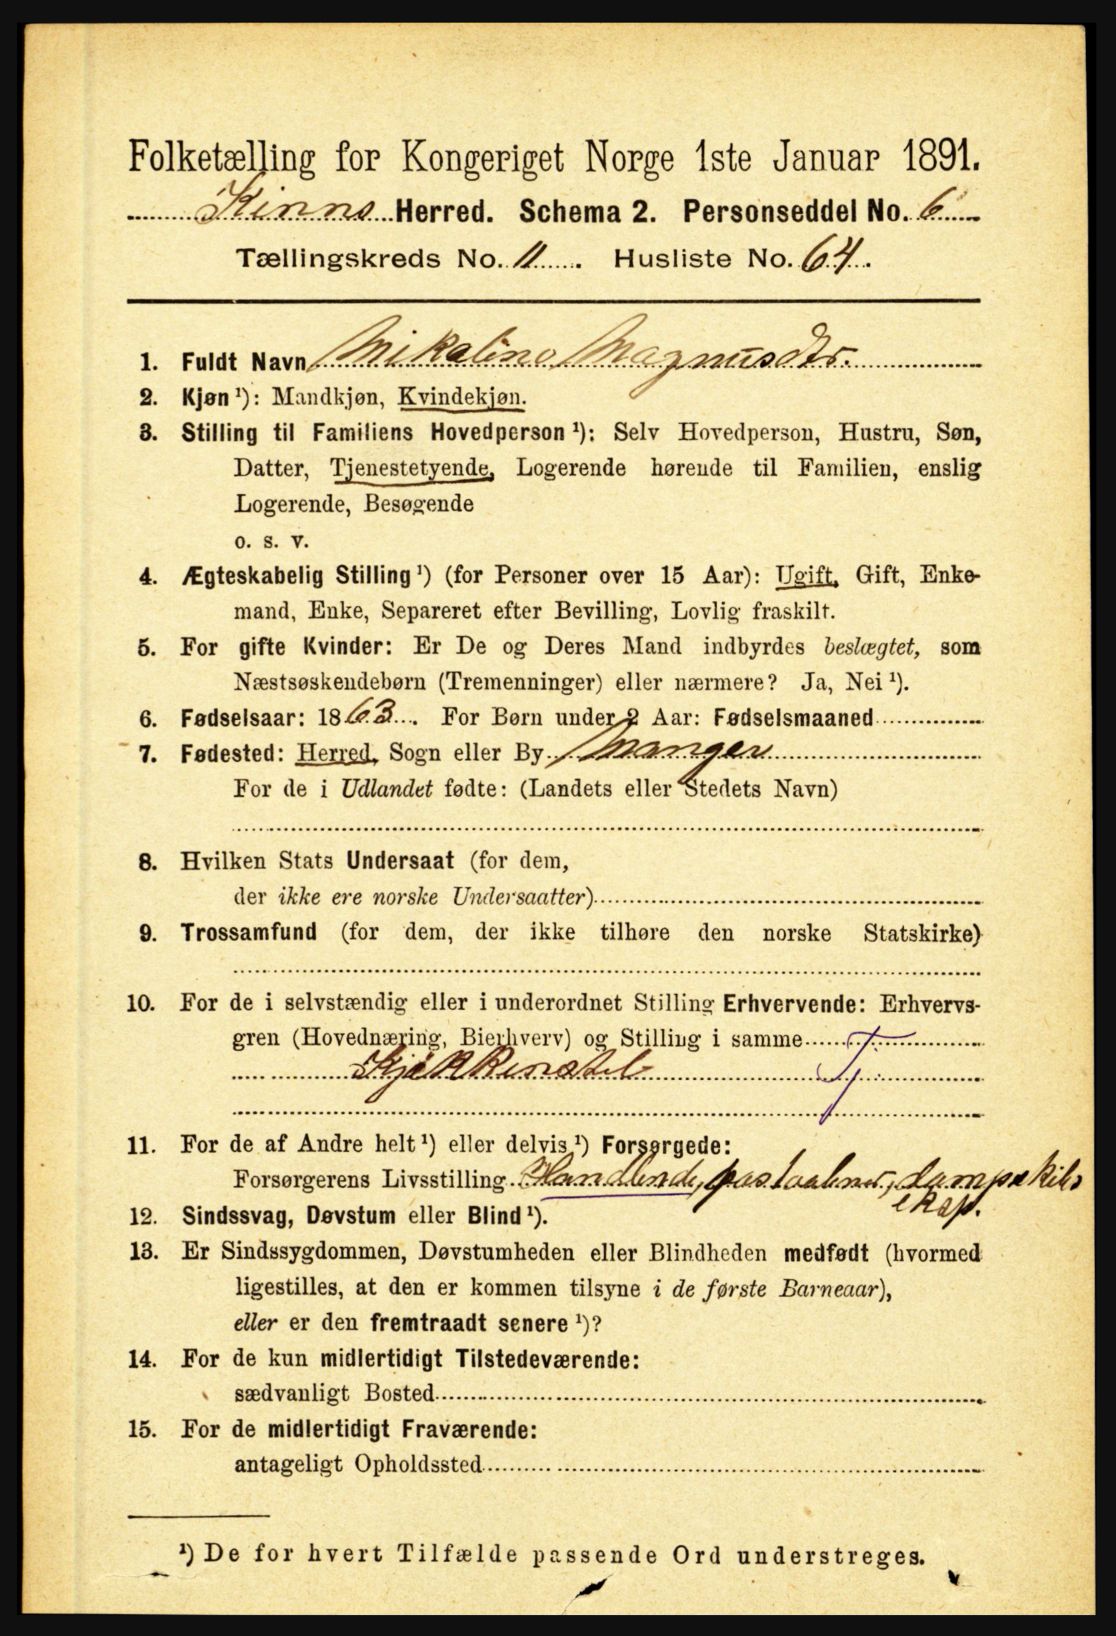 Folketælling for Kongeriget Norge 1ste Januar 1891.
Kinns Herred. Schema 2. Personseddel No. 6
Tællingskreds No. 11. Husliste No. 64.
1. Fuldt Navn Nikoline Magnusdtr.
2. Kjøn ¹): Mandkjøn, Kvindekjøn.
3. Stilling til Familiens Hovedperson ¹): Selv Hovedperson, Hustru, Søn,
Datter, Tjenestetyende, Logerende hørende til Familien, enslig
Logerende, Besøgende
o. s. v.
4. Ægteskabelig Stilling ¹) (for Personer over 15 Aar): Ugift, Gift, Enke-
mand, Enke, Separeret efter Bevilling, Lovlig fraskilt.
5. For gifte Kvinder: Er De og Deres Mand indbyrdes beslægtet, som
Næstsøskendebørn (Tremenninger) eller nærmere? Ja, Nei ¹).
6. Fødselsaar: 1863. For Børn under 2 Aar: Fødselsmaaned
7. Fødested: Herred, Sogn eller By Manger
For de i Udlandet fødte: (Landets eller Stedets Navn)
8. Hvilken Stats Undersaat (for dem,
der ikke ere norske Undersaatter)
9. Trossamfund (for dem, der ikke tilhøre den norske Statskirke)
10. For de i selvstændig eller i underordnet Stilling Erhvervende: Erhvervs-
gren (Hovednæring, Bierhverv) og Stilling i samme Tj.
11. For de af Andre helt ¹) eller delvis ¹) Forsørgede:
Forsørgerens Livsstilling Handlende,
12. Sindssvag, Døvstum eller Blind ¹).
13. Er Sindssygdommen, Døvstumheden eller Blindheden medfødt (hvormed
ligestilles, at den er kommen tilsyne i de første Barneaar),
eller er den fremtraadt senere ¹)?
14. For de kun midlertidigt Tilstedeværende:
sædvanligt Bosted
15. For de midlertidigt Fraværende:
antageligt Opholdssted
¹) De for hvert Tilfælde passende Ord understreges.